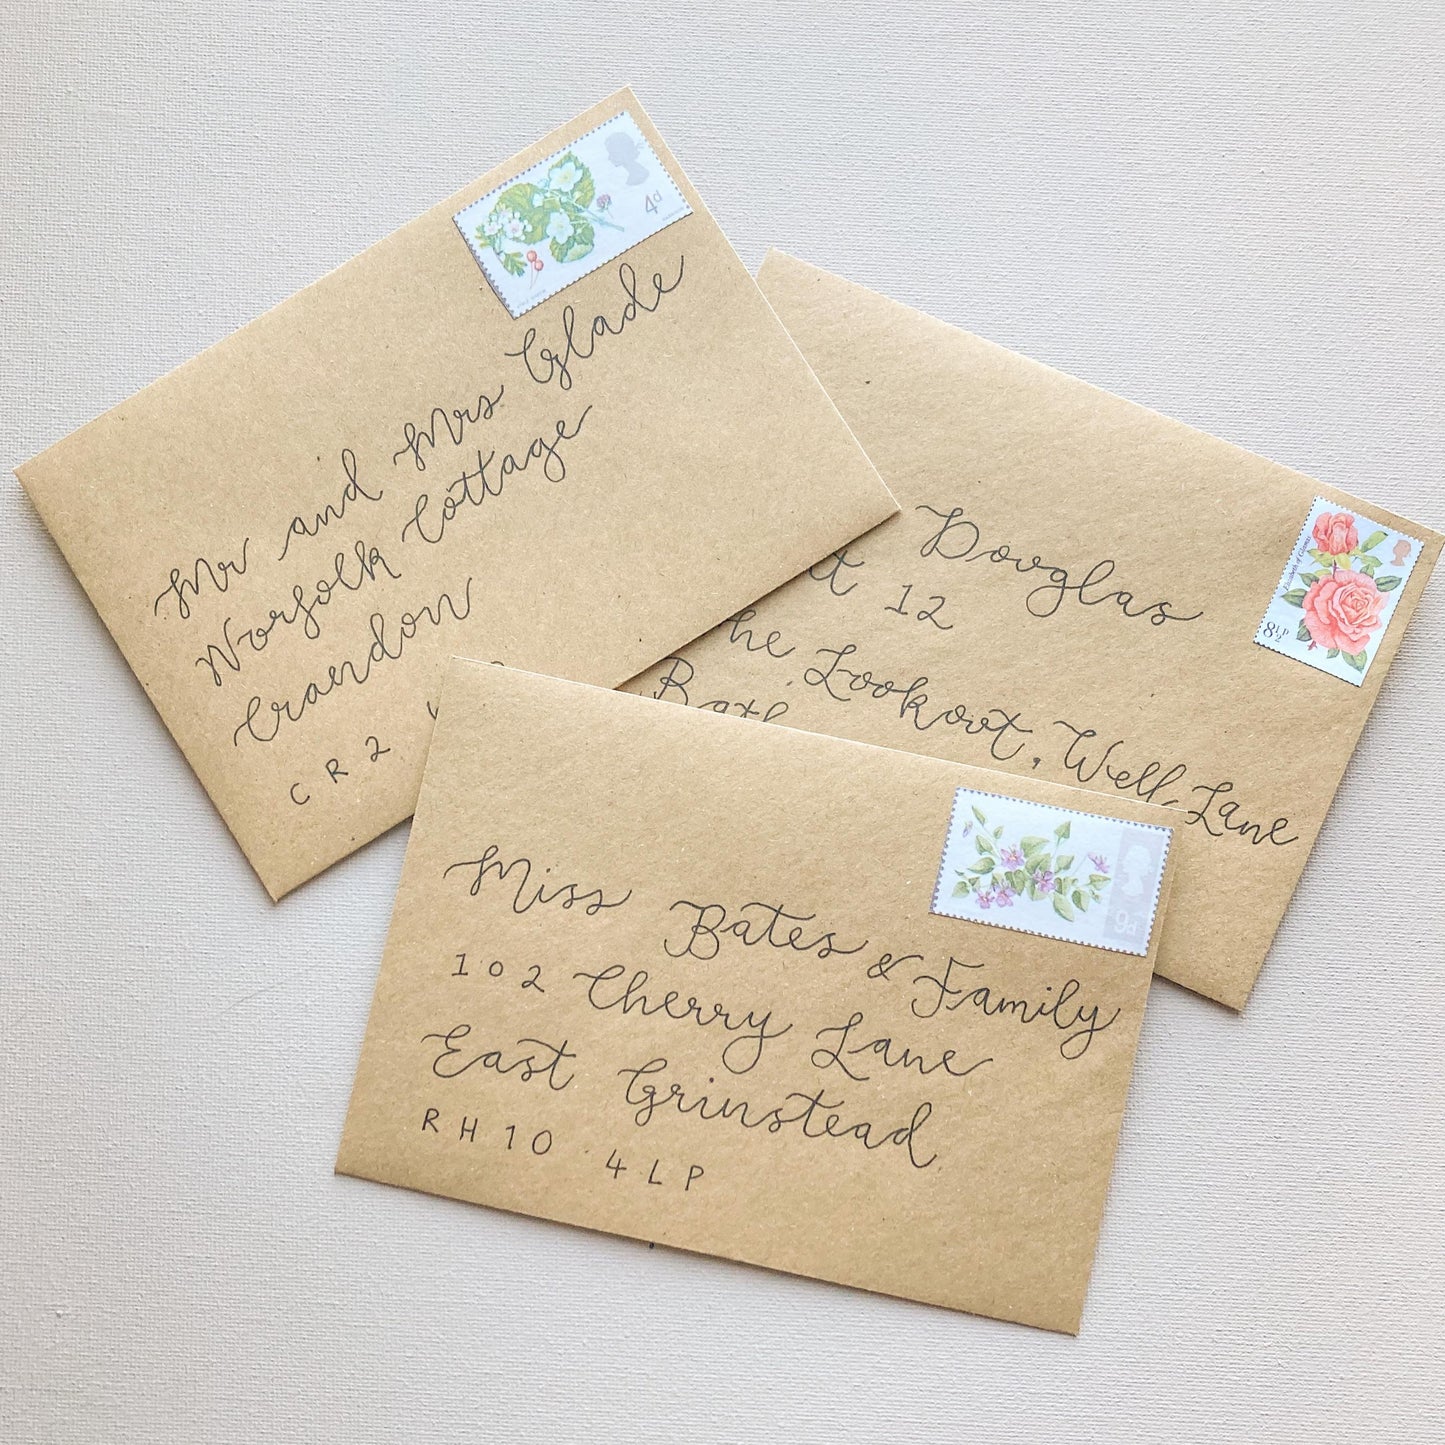 4d
Mr and Mrs Glade
Norfolk Cottage
Craendon
CR2
Elizabeth of Glamis
8½P
Douglas
12
The Lookout, Well Lane
Bath
9d
Miss Bates & Family
102 Cherry Lane
East Grinstead
RH10 4LP